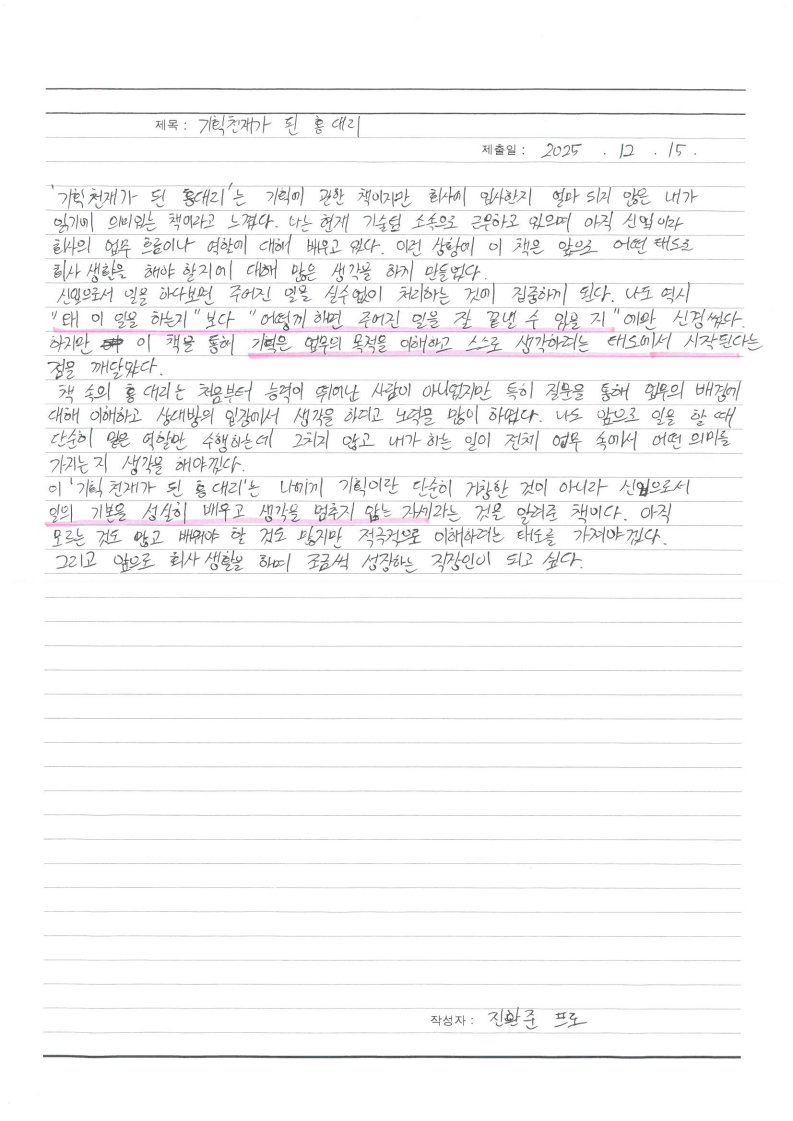 제목 : 기획천재가 된 홍대리
제출일 : 2025 . 12 . 15 .
'기획천재가 된 홍대리'는 기획에 관한 책이지만 회사에 입사한지 얼마 되지 않은 내가
읽기에 의미있는 책이라고 느꼈다. 나는 현재 기술팀 소속으로 근무하고 있으며 아직 신입이라
회사의 업무 흐름이나 역할에 대해 배우고 있다. 이런 상황에 이 책은 앞으로 어떤 태도로
회사 생활을 해야 할지에 대해 많은 생각을 하게 만들었다.
신입으로서 일을 하다보면 주어진 일을 실수없이 처리하는 것에 집중하게 된다. 나도 역시
"왜 이 일을 하는지" 보다 "어떻게 하면 주어진 일을 잘 끝낼 수 있을 지" 에만 신경썼다.
하지만 이 책을 통해 기획은 업무의 목적을 이해하고 스스로 생각하려는 태도에서 시작된다는
점을 깨달았다.
책 속의 홍대리는 처음부터 능력이 뛰어난 사람이 아니었지만 특히 질문을 통해 업무의 배경에
대해 이해하고 상대방의 입장에서 생각을 하려고 노력을 많이 하였다. 나도 앞으로 일을 할 때
단순히 맡은 역할만 수행하는데 그치지 않고 내가 하는 일이 전체 업무 속에서 어떤 의미를
가지는 지 생각을 해야겠다.
이 '기획천재가 된 홍대리'는 나에게 기획이란 단순히 거창한 것이 아니라 신입으로서
일의 기본을 성실히 배우고 생각을 멈추지 않는 자세라는 것을 알려준 책이다. 아직
모르는 것도 많고 배워야 할 것도 많지만 적극적으로 이해하려는 태도를 가져야겠다.
그리고 앞으로 회사 생활을 하며 조금씩 성장하는 직장인이 되고 싶다.
작성자 : 진환준 프로